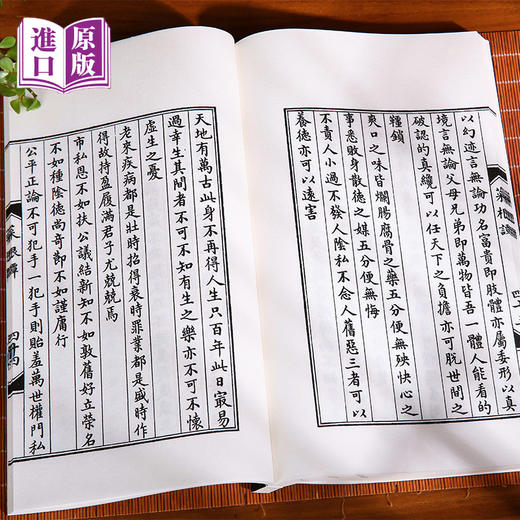 進口
原版
菜根譚
以幻迹言無論功名富貴即肢體亦屬委形以真
境言無論父母兄弟即萬物皆吾一體人能看的
破認的真纔可以任天下之負擔亦可脫世間之
韁鎖
爽口之味皆爛腸腐骨之藥五分便無殃快心之
事悉敗身散德之媒五分便無悔
不責人小過不發人陰私不念人舊惡三者可以
養德亦可以遠害
天地有萬古此身不再得人生只百年此日㝡易
過幸生其間者不可不知有生之樂亦不可不懷
虛生之憂
老來疾病都是壯時招得衰時罪業都是盛時作
得故持盈履滿君子尤兢兢焉
市私恩不如扶公議結新知不如敦舊好立榮名
不如種陰德尚奇節不如謹庸行
公平正論不可犯手一犯手則貽羞萬世權門私
菜根譚